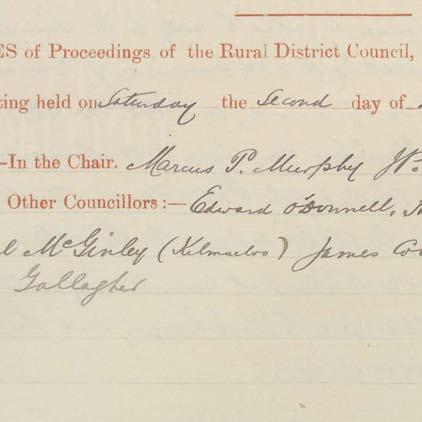 ES of Proceedings of the Rural District Council,
ting held on Saturday the Second day of
—In the Chair. Marcus P. Murphy
Other Councillors:— Edward O'Donnell,
l McGinley (Kilmacloo) James
Gallagher